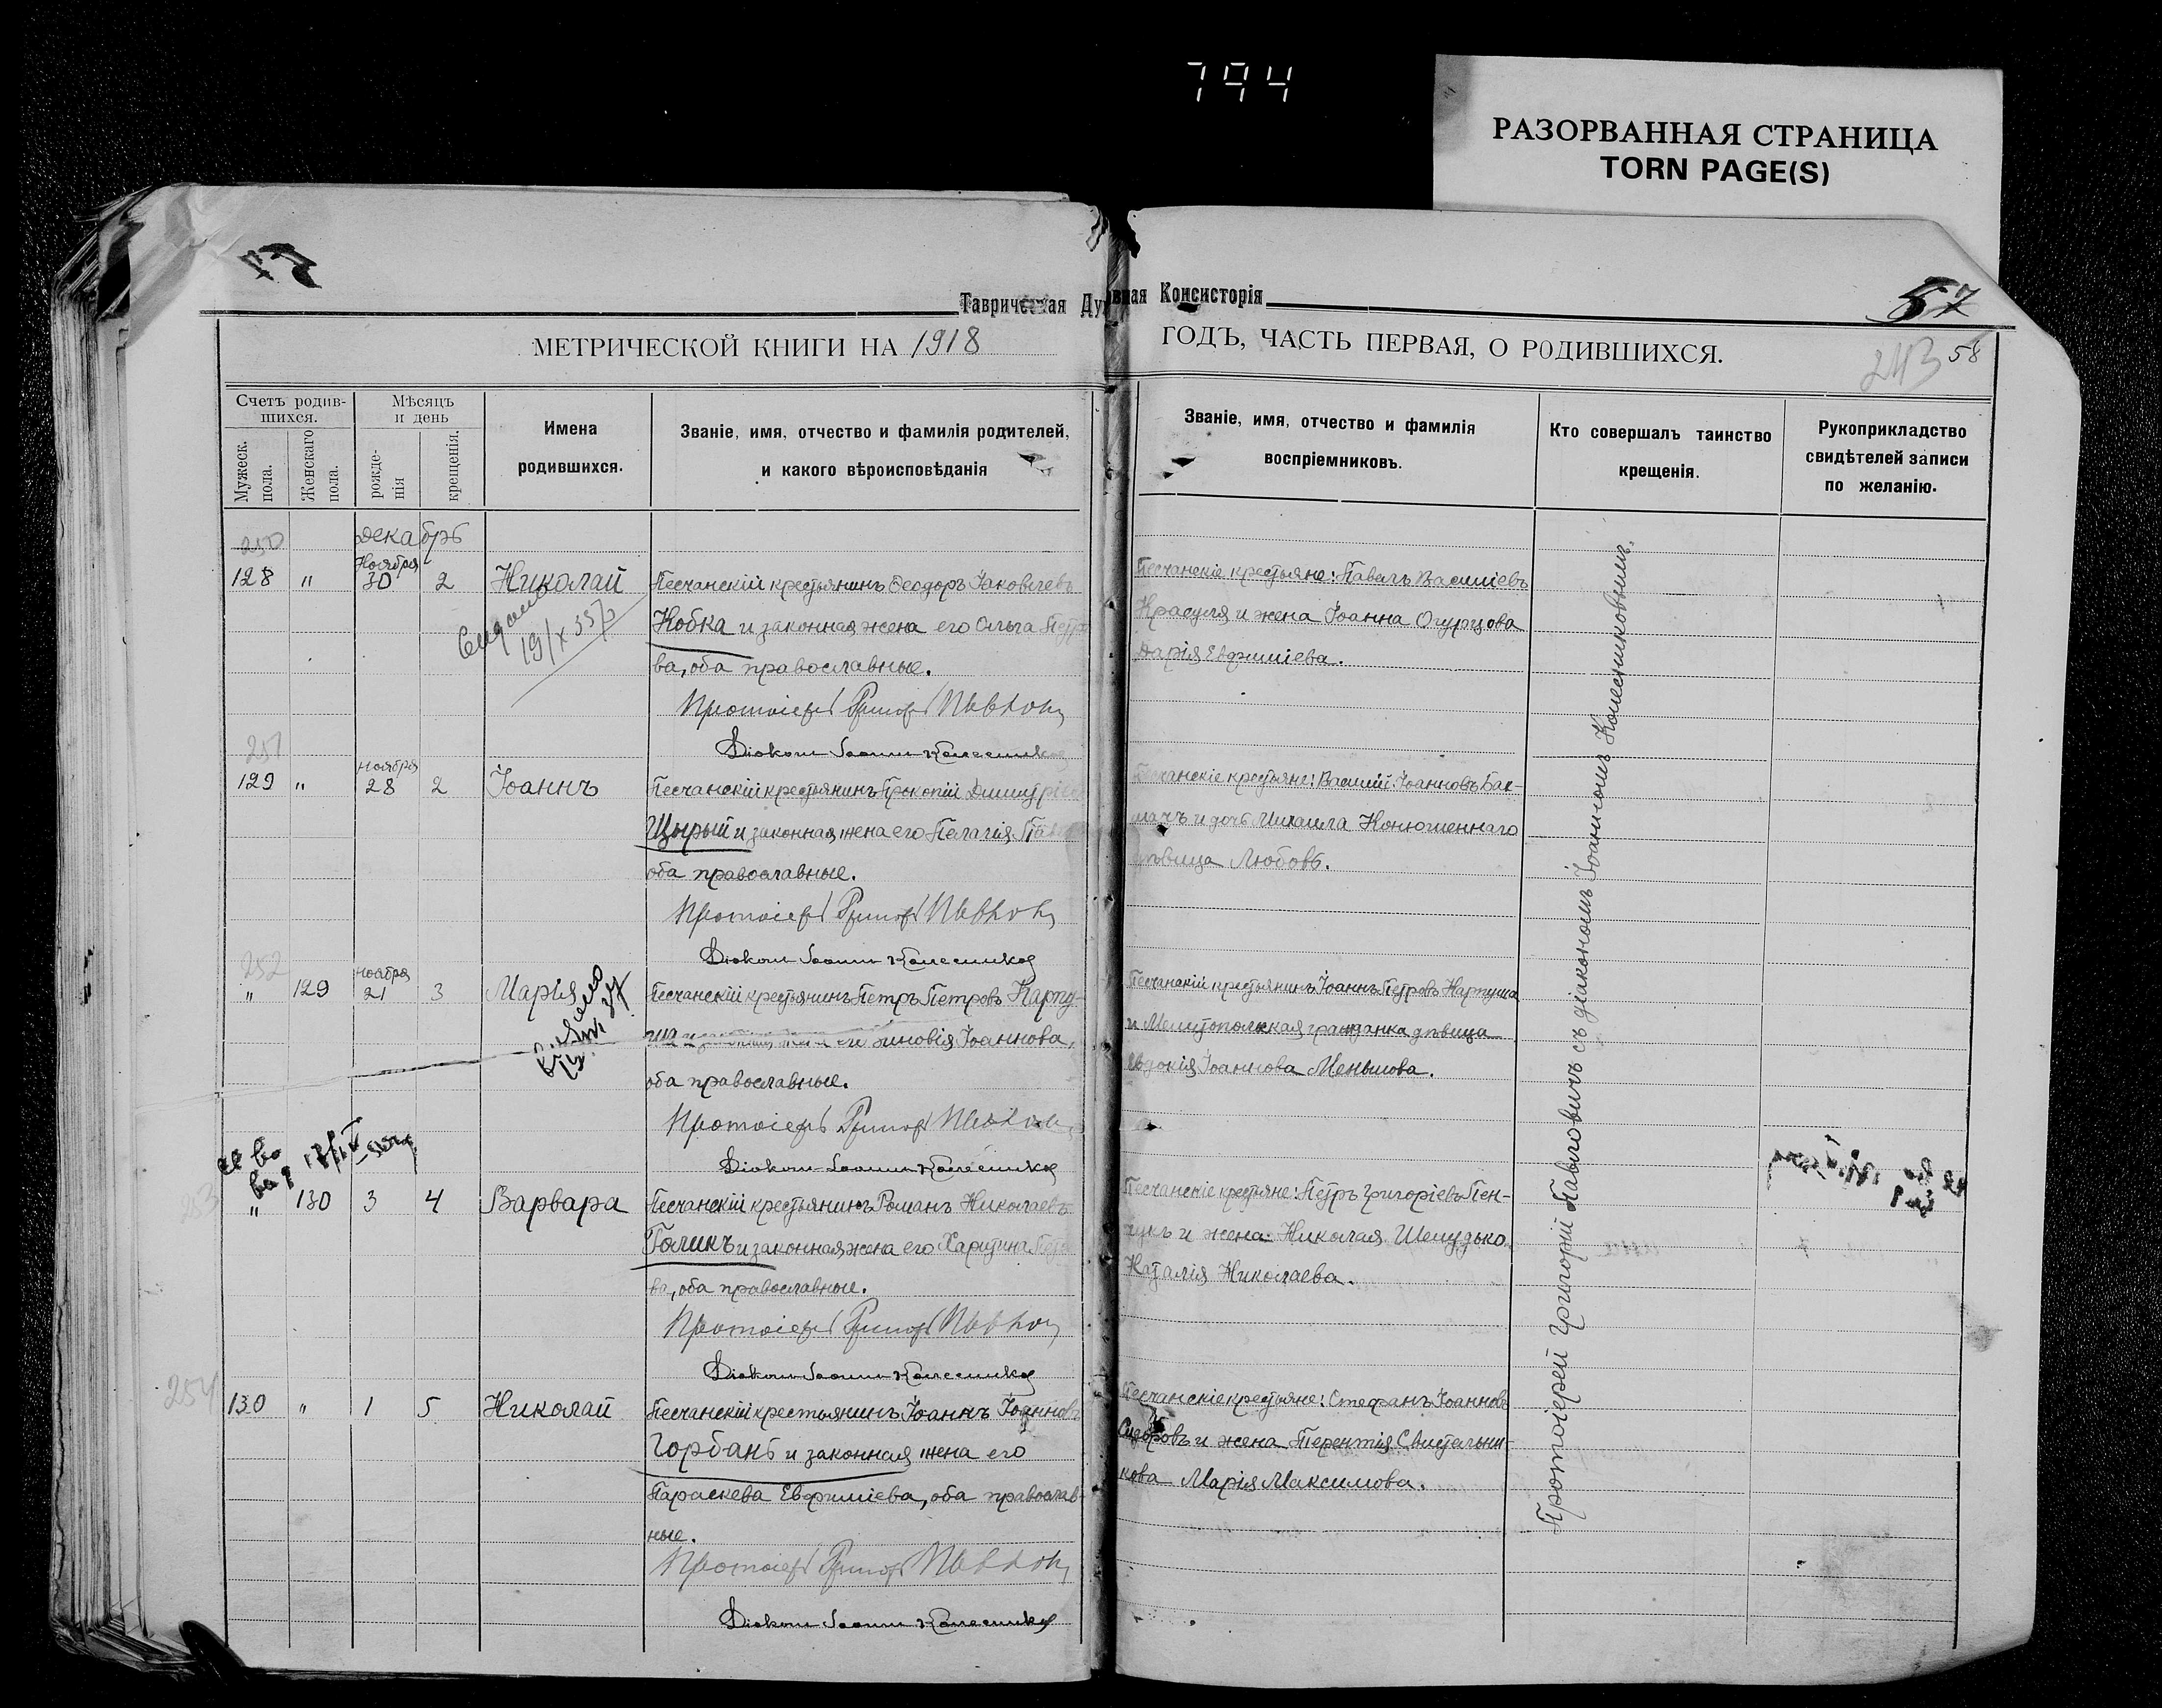 794
РАЗОРВАННАЯ СТРАНИЦА
TORN PAGE(S)
Таврическая Духовная Консисторія
57
МЕТРИЧЕСКОЙ КНИГИ НА 1918
ГОДЪ, ЧАСТЬ ПЕРВАЯ, О РОДИВШИХСЯ.
243 58
Счетъ родив-
шихся.
Мужеск.
пола.
Женскаго
пола.
Мѣсяцъ
и день
рожде-
нія
крещенія.
Имена
родившихся.
Званіе, имя, отчество и фамилія родителей,
и какого вѣроисповѣданія
Званіе, имя, отчество и фамилія
воспріемниковъ.
Кто совершалъ таинство
крещенія.
Рукоприкладство
свидѣтелей записи
по желанію.
250
Декабрь
Ноября
128 " 30 2 Николай
Песчанскій крестьянинъ Ѳеодоръ Іаковлевъ
Кобка и законная жена его Ольга Петро
ва, оба православные.
Протоіерей Григор
Діаконъ Іоаннъ Колесников
Песчанскіе крестьяне: Павелъ Василіевъ
Красуля и жена Іоанна Огурцова
Дарія Евфиміева.
19/X 35
251
ноября
129 " 28 2 Іоаннъ
Песчанскій крестьянинъ Прокопій Димитріев
Щирый и законная жена его Пелагія Пав
оба православные.
Протоіерей Григор
Діаконъ Іоаннъ Колесников
Песчанскіе крестьяне: Василій Іоанновъ Бак-
и дочь Михаила Конюшеннаго
дѣвица Любовь.
252
ноября
" 129 21 3 Марія
Песчанскій крестьянинъ Петръ Петровъ Карпу-
ша и Зиновія Іоаннова,
оба православные.
Протоіерей Григор
Діаконъ Іоаннъ Колесников
Песчанскій крестьянинъ Іоаннъ Петровъ Карпуша
и Мелитопольская гражданка дѣвица
Евдокія Іоаннова Меньшова.
253
" 130 3 4 Варвара
Песчанскій крестьянинъ Романъ Николаевъ
Голикъ и законная жена его Харитина Петро
ва, оба православные.
Протоіерей Григор
Діаконъ Іоаннъ Колесников
Песчанскіе крестьяне: Петръ Григоріевъ Пен-
и жена Николая Шемудько
Наталія Николаева.
254
130 " 1 5 Николай
Песчанскій крестьянинъ Іоаннъ Іоанновъ
Горбань и законная жена его
Параскева Евфиміева, оба православ-
ные.
Протоіерей Григор
Діаконъ Іоаннъ Колесников
Песчанскіе крестьяне: Стефанъ Іоанновъ
Сидоровъ и жена Терентія Свистельни-
кова Марія Максимова.
Протоіерей Григорій Павловичъ съ діакономъ Іоанномъ Колесниковымъ.